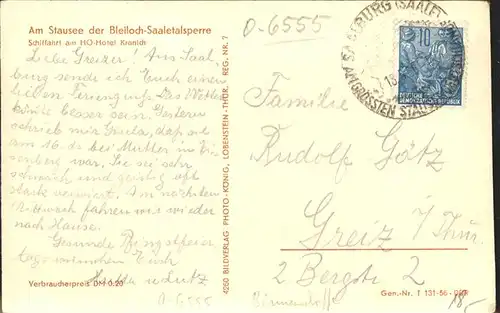 Am Stausee der Bleiloch-Saaletalsperre
Schiffahrt am HO-Hotel Kranich
O-6555
Liebe Greizer! Aus Saal-
burg sende ich Euch einen
lieben Feriengruß. Das Wetter
könnte besser sein. Gestern
schrieb mir daß sie
am 16. ds bei Mutter in
senberg war. Sie sei sehr
schwach und geistig oft
stark verwirrt. Am nächsten
Mittwoch fahren wir wieder
nach Hause.
Gesunde Pfingstfeier
tage wünschen Euch
u. Lutz
Verbraucherpreis DM 0.20
O-6555
4260 BILDVERLAG PHOTO-KÖNIG, LOBENSTEIN-THÜR. REG. NR. 7
SAALBURG (SAALE)
AM GRÖSSTEN
10
DEUTSCHE
DEMOKRATISCHE REPUBLIK
Familie
Rudolf Götz
Greiz i/Thür.
2 Bergstr. 2
Gen.-Nr. T 131-56
18,-